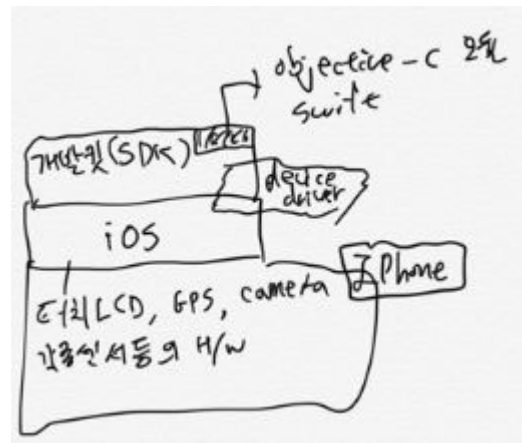 objective-c 모듈
swift
개발킷(SDK)
device
driver
iOS
I Phone
터치LCD, GPS, camera
각종센서등의 H/W